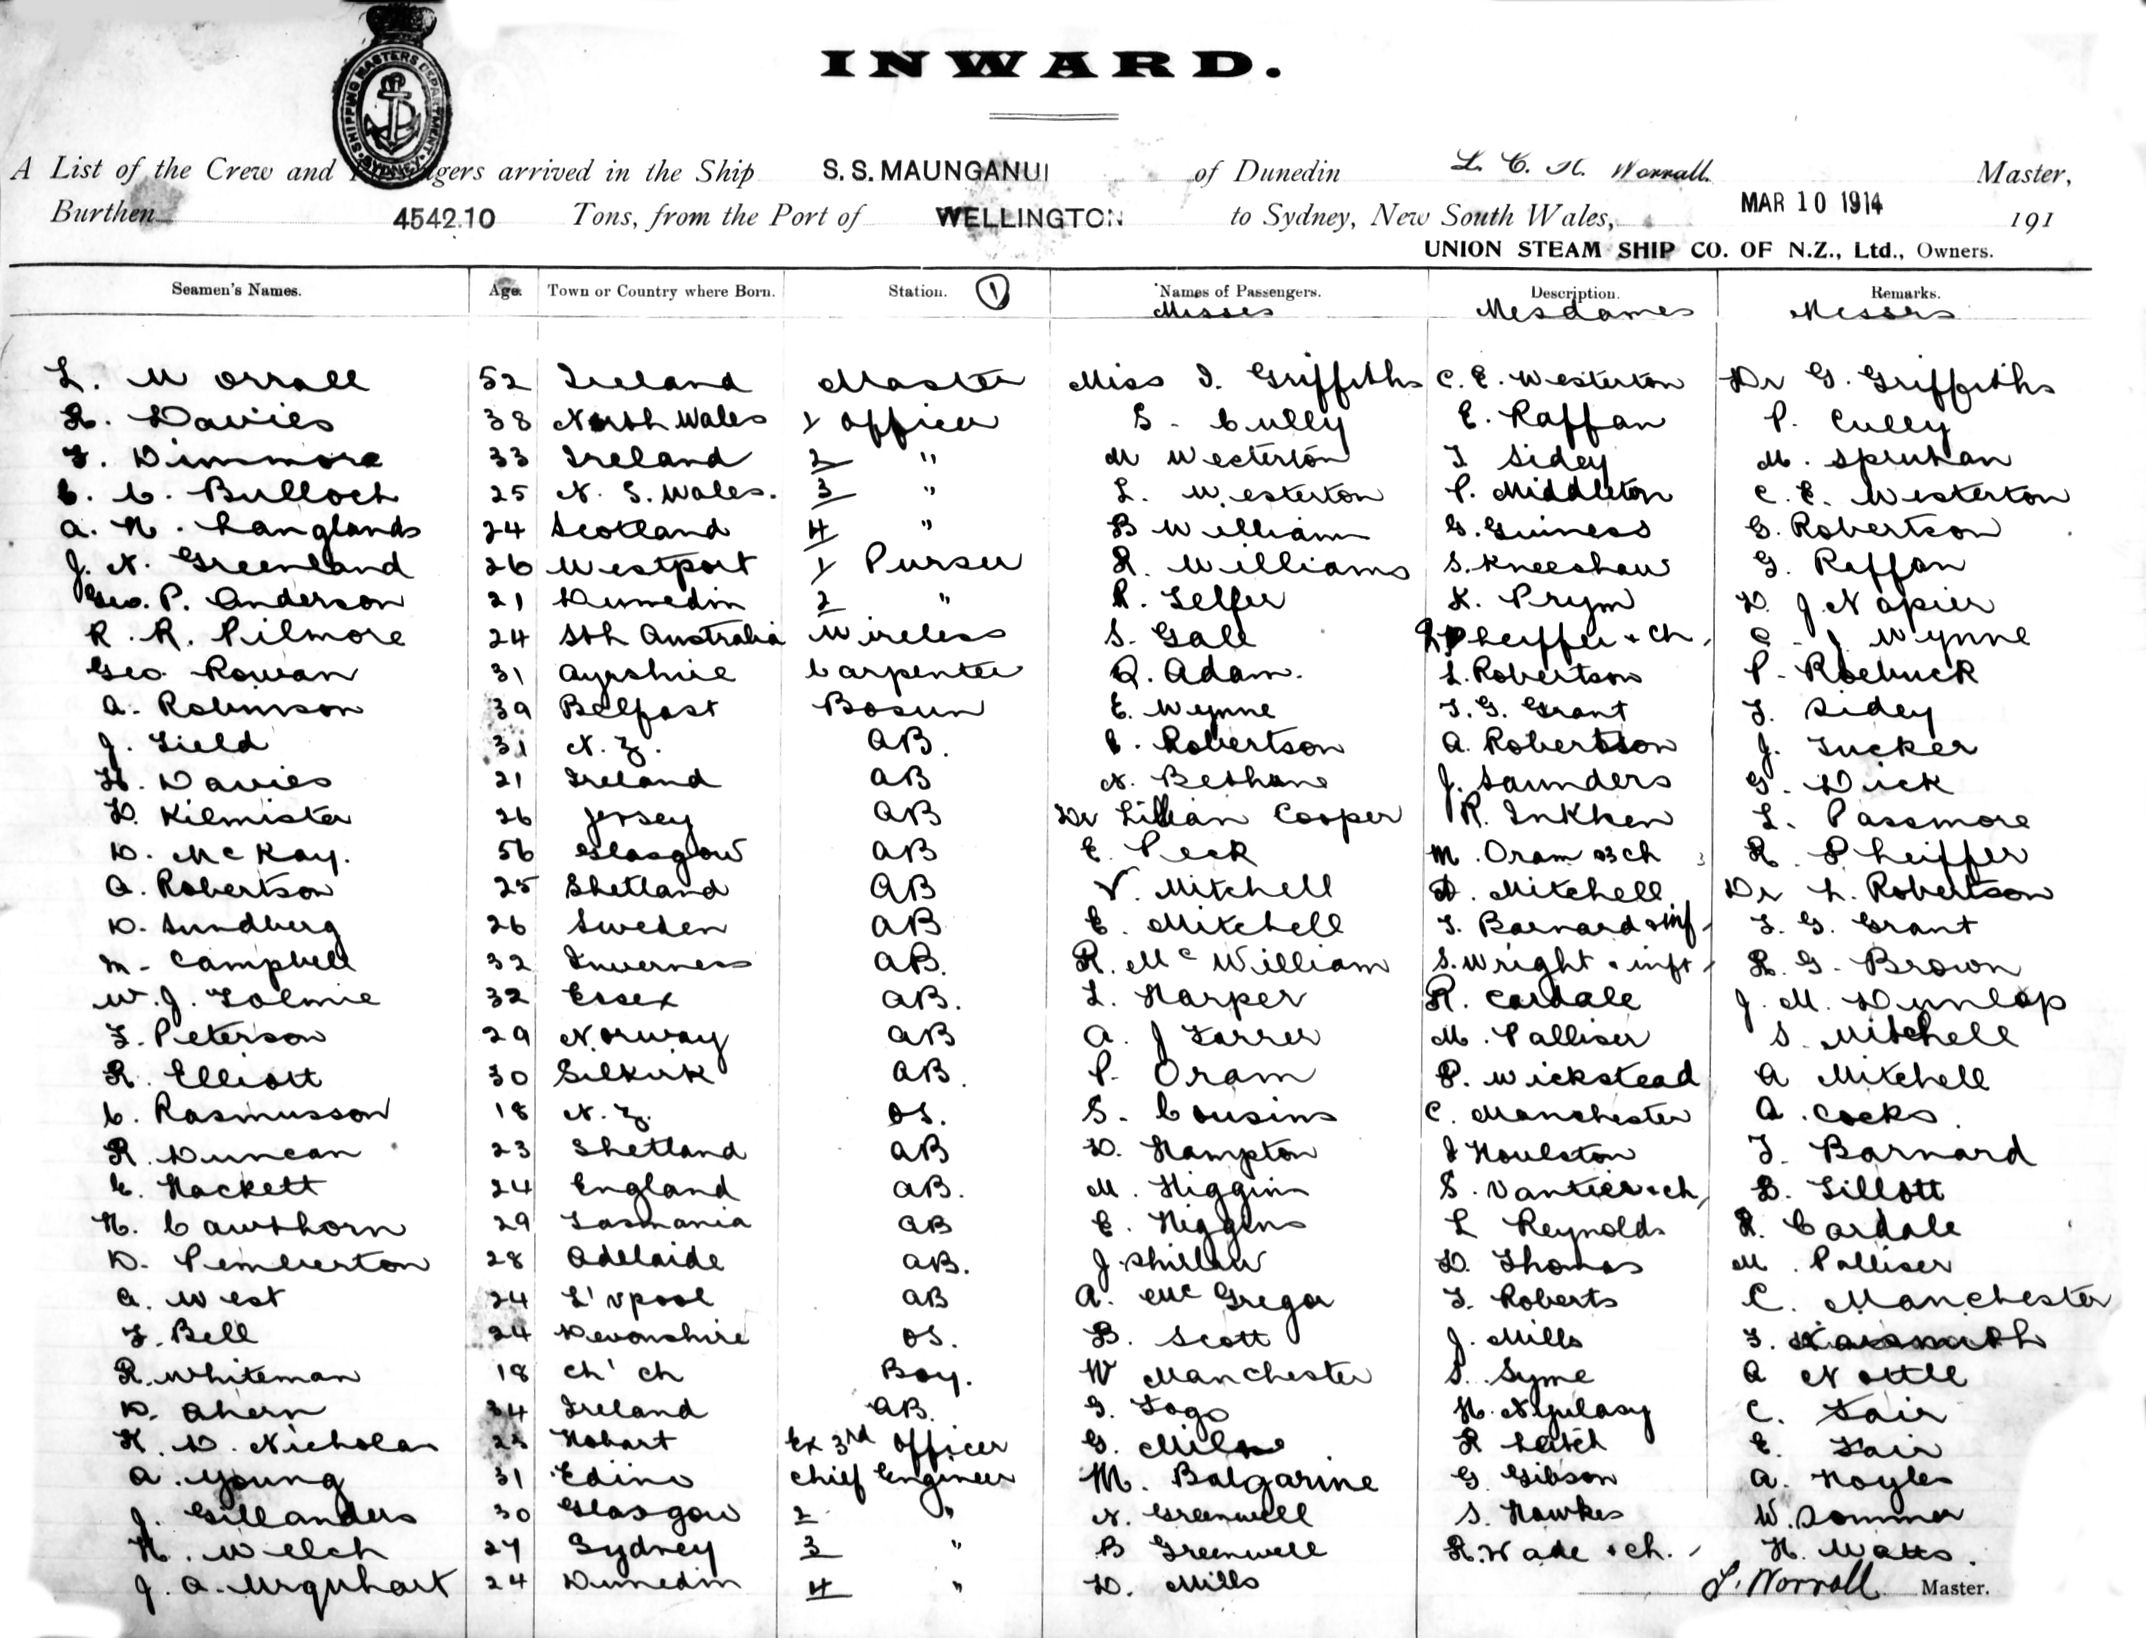 INWARD.
SHIPPING MASTERS DEPARTMENT SYDNEY
A List of the Crew and gers arrived in the Ship S.S. MAUNGANUI of Dunedin L. C. H. Worrall. Master,
Burthen 4542.10 Tons, from the Port of WELLINGTON to Sydney, New South Wales, MAR 10 1914 191
UNION STEAM SHIP CO. OF N.Z., Ltd., Owners.
Seamen's Names. Age. Town or Country where Born. Station. 1 Names of Passengers. Description. Remarks.
Misses Mesdames Messrs
L. Worrall 52 Ireland Master Miss I. Griffiths C. E. Westerton Dr G. Griffiths
R. Davies 38 North Wales 1 Officer S. Cully E. Raffan P. Cully
F. Dimmore 33 Ireland 2 " M Westerton T Sidey M.
C. C. Bulloch 25 N. S. Wales. 3 " L. Westerton P. Middleton C. E. Westerton
A. N. Langlands 24 Scotland 4 " B Williams G. Guiness G. Robertson
J. N. Greenland 26 Westport 1 Purser R. Williams S. Kneeshaw G. Raffan
Geo. P. Anderson 21 Dunedin 2 " R. Telfer K. Prym D. J Napier
R. R. Pilmore 24 Sth Australia Wireless S. Gall Pheiffer & ch. J Wynne
Geo. Rowan 31 Ayrshire Carpenter Q. Adam. L. Robertson P. Roebuck
A. Robinson 39 Belfast Bosun E. Wynne T. G. Grant T. Sidey
J. Field 31 N. Z. AB. C. Robertson A. Robertson J. Tucker
H. Davies 21 Ireland AB N. Bethune J. Saunders G. Dick
D. Kilmister 26 Jersey AB Dr Lillian Cooper R. Inkhen L. Passmore
D. McKay. 56 Glasgow AB E. Peck M. Oram & 3 ch R. Pheiffer
A. Robertson 25 Shetland AB V. Mitchell A. Mitchell Dr L. Robertson
D. Sundberg 26 Sweden AB E. Mitchell T. Barnard & inf T. G. Grant
M. Campbell 32 Inverness AB. R. McWilliam S. Wright & inft R. G. Brown
W. J. Tolmie 32 Essex AB. L. Harper R. Cardale J. M. Dunlop
T. Peterson 29 Norway AB A. J Farrer M. Palliser S. Mitchell
R. Elliott 30 Selkirk AB. P. Oram P. Wickstead A Mitchell
C. Rasmusson 18 N. Z. OS. S. Cousins C. Manchester A. Cocks.
R. Duncan 23 Shetland AB D. Hampton J Houlston T. Barnard
C. Hackett 24 England AB. M. Higgins S. Vantier & ch B. Tillott
N. Cawthorn 29 Tasmania AB E. Higgins L Reynolds R. Cardale
D. Pemberton 28 Adelaide AB. J. Shirlaw D. Thomas M. Palliser
A. West 24 L'vpool AB A. McGregor T. Roberts C. Manchester
F. Bell 24 Devonshire OS. B. Scott J. Mills T.
R. Whiteman 18 Ch'ch Boy. W Manchester S. Syme A Nottle
D. Ahern 34 Ireland AB. G. Fogo H. C. Fair
H. D. Nicholas 23 Hobart Ex 3rd Officer G. Milne R Leitch E. Fair
A. Young 31 Edin. Chief Engineer M. Balgarine G. Gibson A. Hoyles
J. Gillanders 30 Glasgow 2 " N. Greenwell S. Hawkes W. Sommer
H. Welch 27 Sydney 3 " B Greenwell R. Wade & ch. H. Watts.
J. A. Urquhart 24 Dunedin 4 " D. Mills L. Worrall Master.